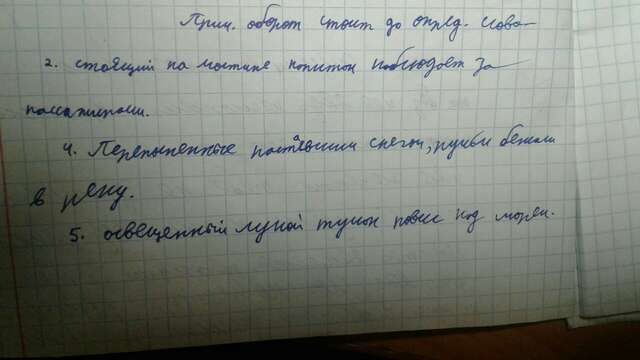 Прич. оборот стоит до опред. слова
2. стоящий на мостике капитан наблюдает за
пассажирами.
4. Переполненные растаявшим снегом, ручьи бежали
в реку.
5. освещенный луной туман повис над морем.